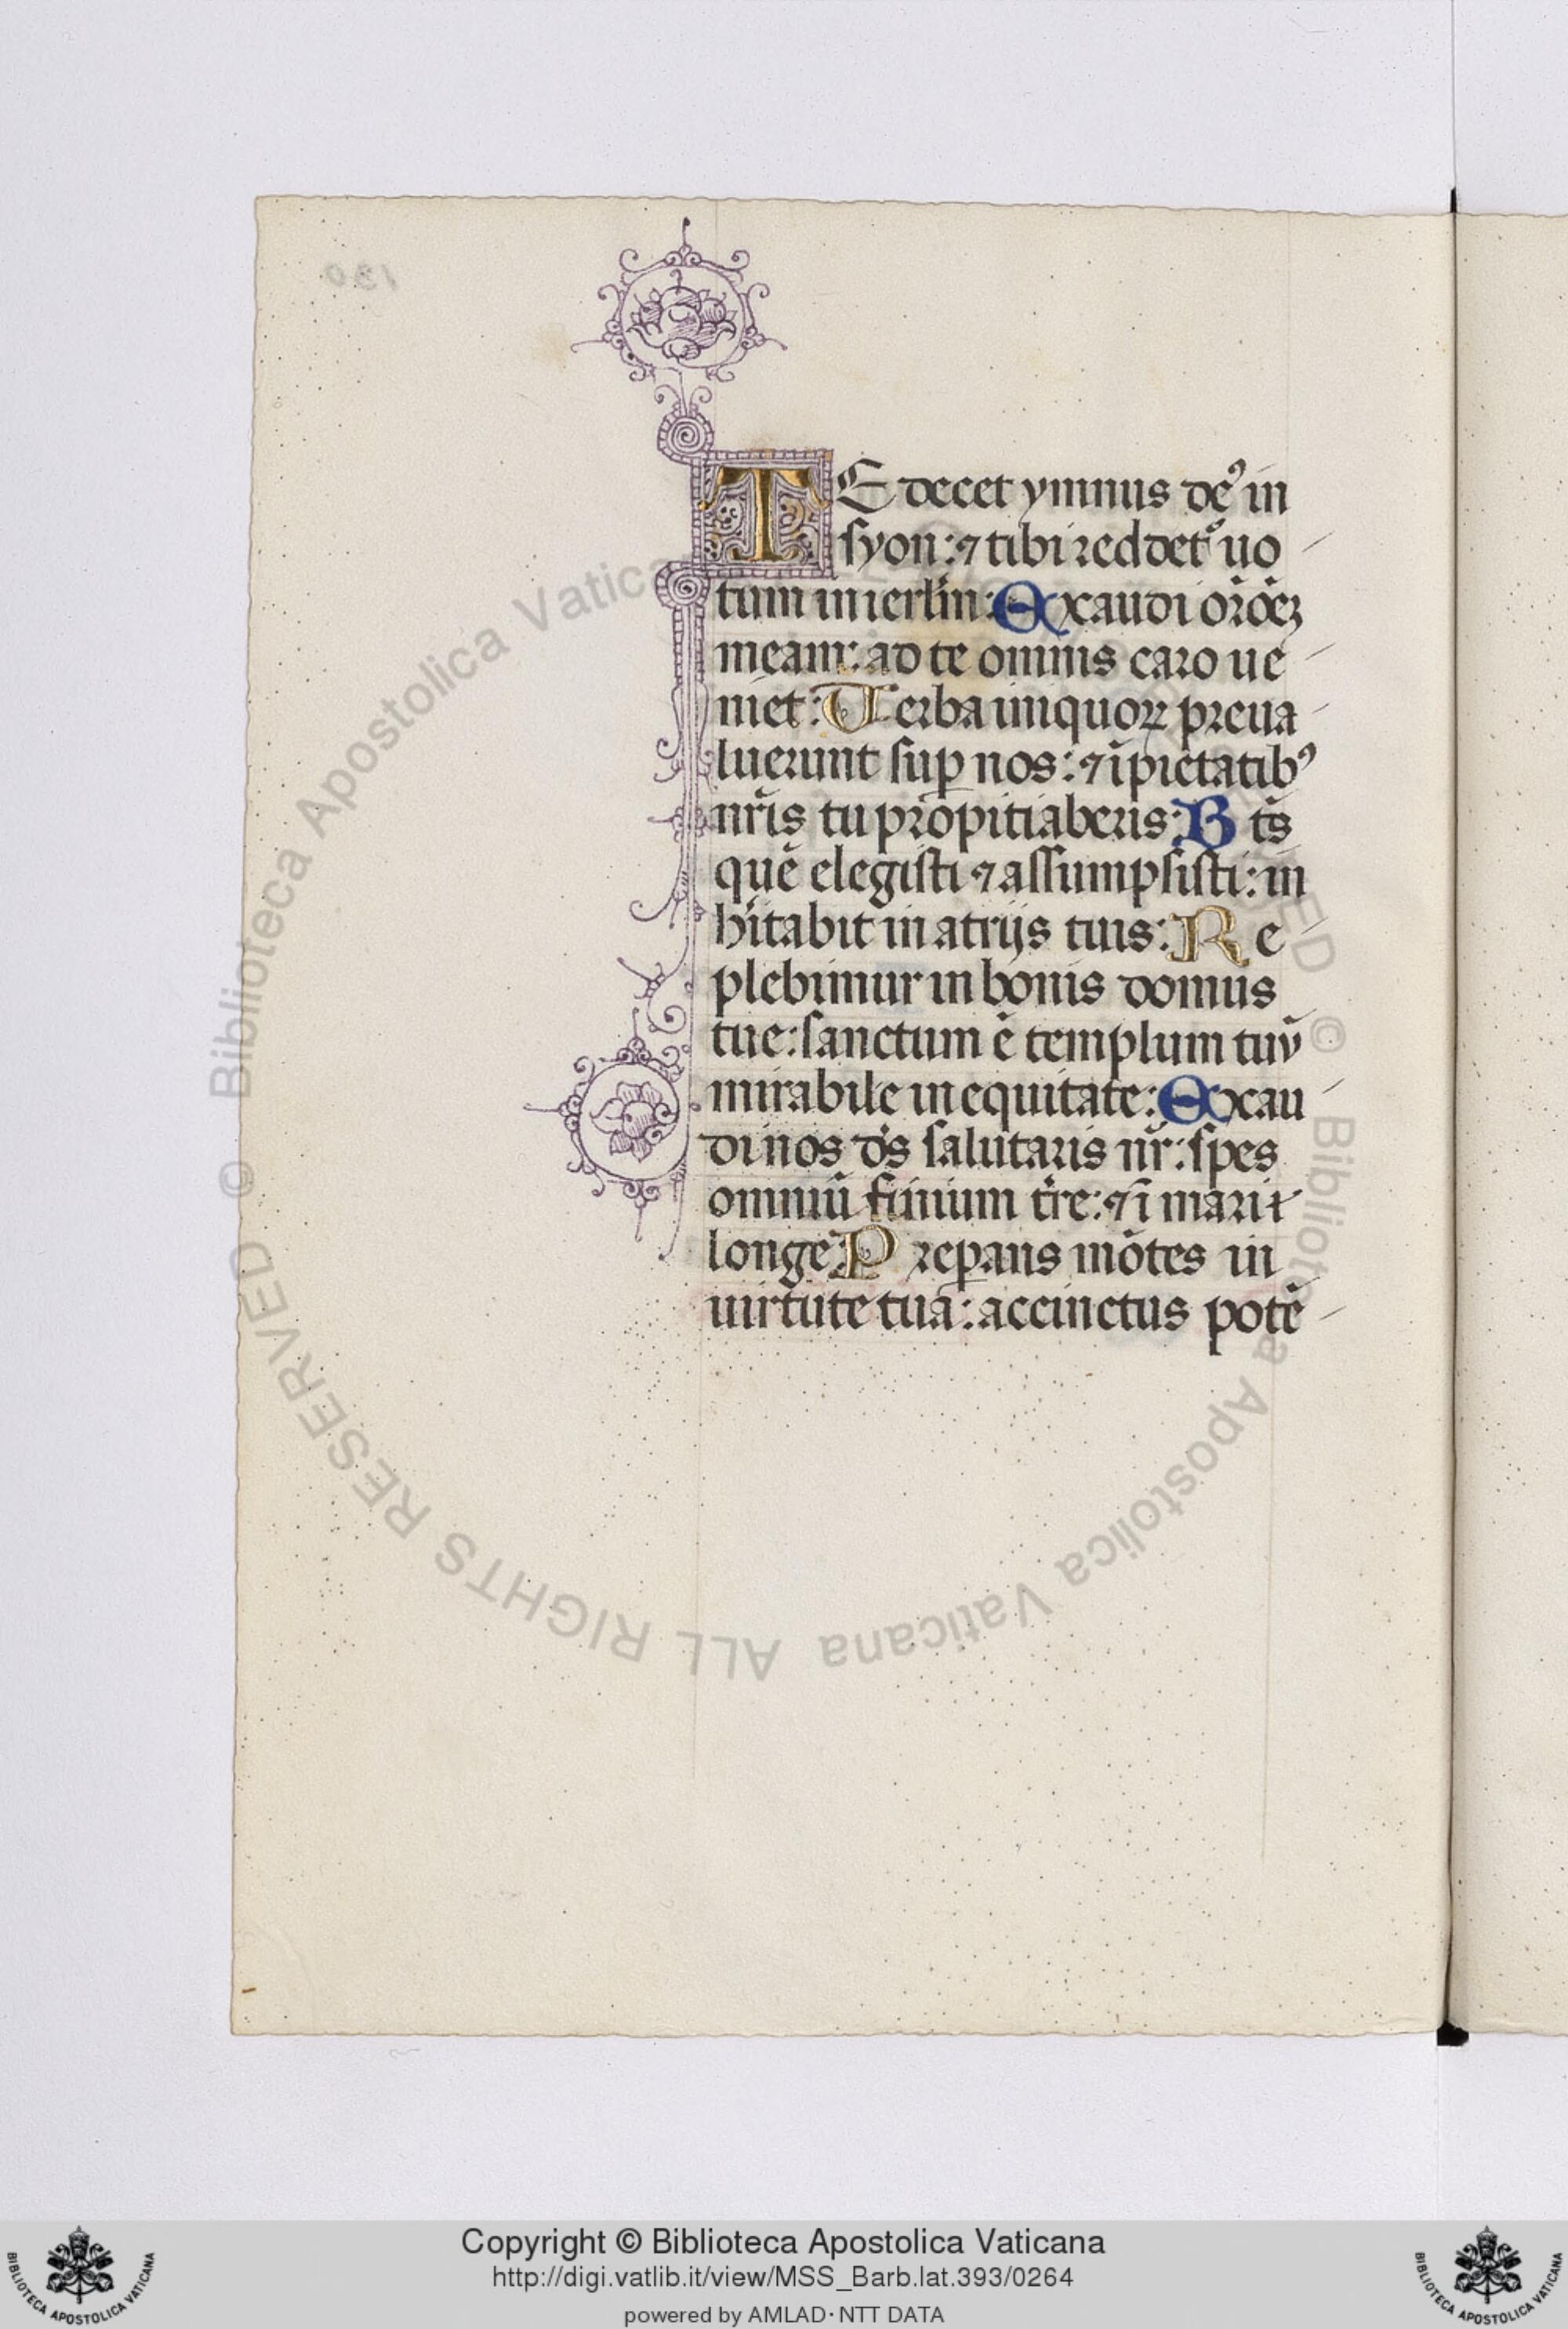 TE decet ymnus deꝰ in
syon: ⁊ tibi reddetᷣ uo
tum in ierl̅m: Exaudi or̅oeꝫ
meam: ad te omnis caro ue
niet: Verba iniquoꝝ preua
luerunt suꝑ nos: ⁊ i̅pietatibꝰ
nr̅is tu propitiaberis: B t̅s
que̅ elegisti ⁊ assumpsisti: in
h̅itabit in atrijs tuis: Re
plebimur in bonis domus
tue: sanctum e̅ templum tuu̅
mirabile in equitate: Exau
di nos d̅s salutaris nr̅: spes
omniu̅ finium tr̅e: ⁊ i̅ mari
longe: Preꝑans mo̅tes in
uirtute tua: accinctus pote̅
130
© Biblioteca Apostolica Vaticana ALL RIGHTS RESERVED
Copyright © Biblioteca Apostolica Vaticana
http://digi.vatlib.it/view/MSS_Barb.lat.393/0264
powered by AMLAD · NTT DATA
BIBLIOTECA APOSTOLICA VATICANA
BIBLIOTECA APOSTOLICA VATICANA